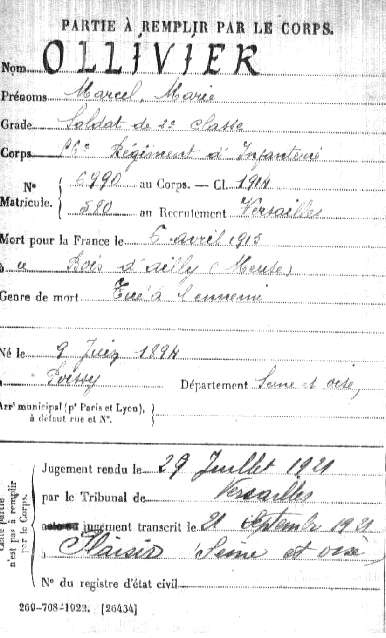 PARTIE À REMPLIR PAR LE CORPS.
Nom OLLIVIER
Prénoms Marcel, Marie
Grade Soldat de 2e classe
Corps Régiment d'Infanterie
N° Matricule. { 6990 au Corps. — Cl. 1914
580 au Recrutement Versailles
Mort pour la France le 6 avril 1915
à u Bois d'ailly (Meuse)
Genre de mort Tué à l'ennemi
Né le 9 Juin 1894
à Poissy Département Seine et oise,
Arrt municipal (pr Paris et Lyon), à défaut rue et N°. {
Cette partie n'est pas à remplir par le Corps.
Jugement rendu le 29 Juillet 1921
par le Tribunal de Versailles
jugement transcrit le 21 Septembre 1921
à Plaisir (Seine et oise)
N° du registre d'état civil
260-708-1922. [26434]